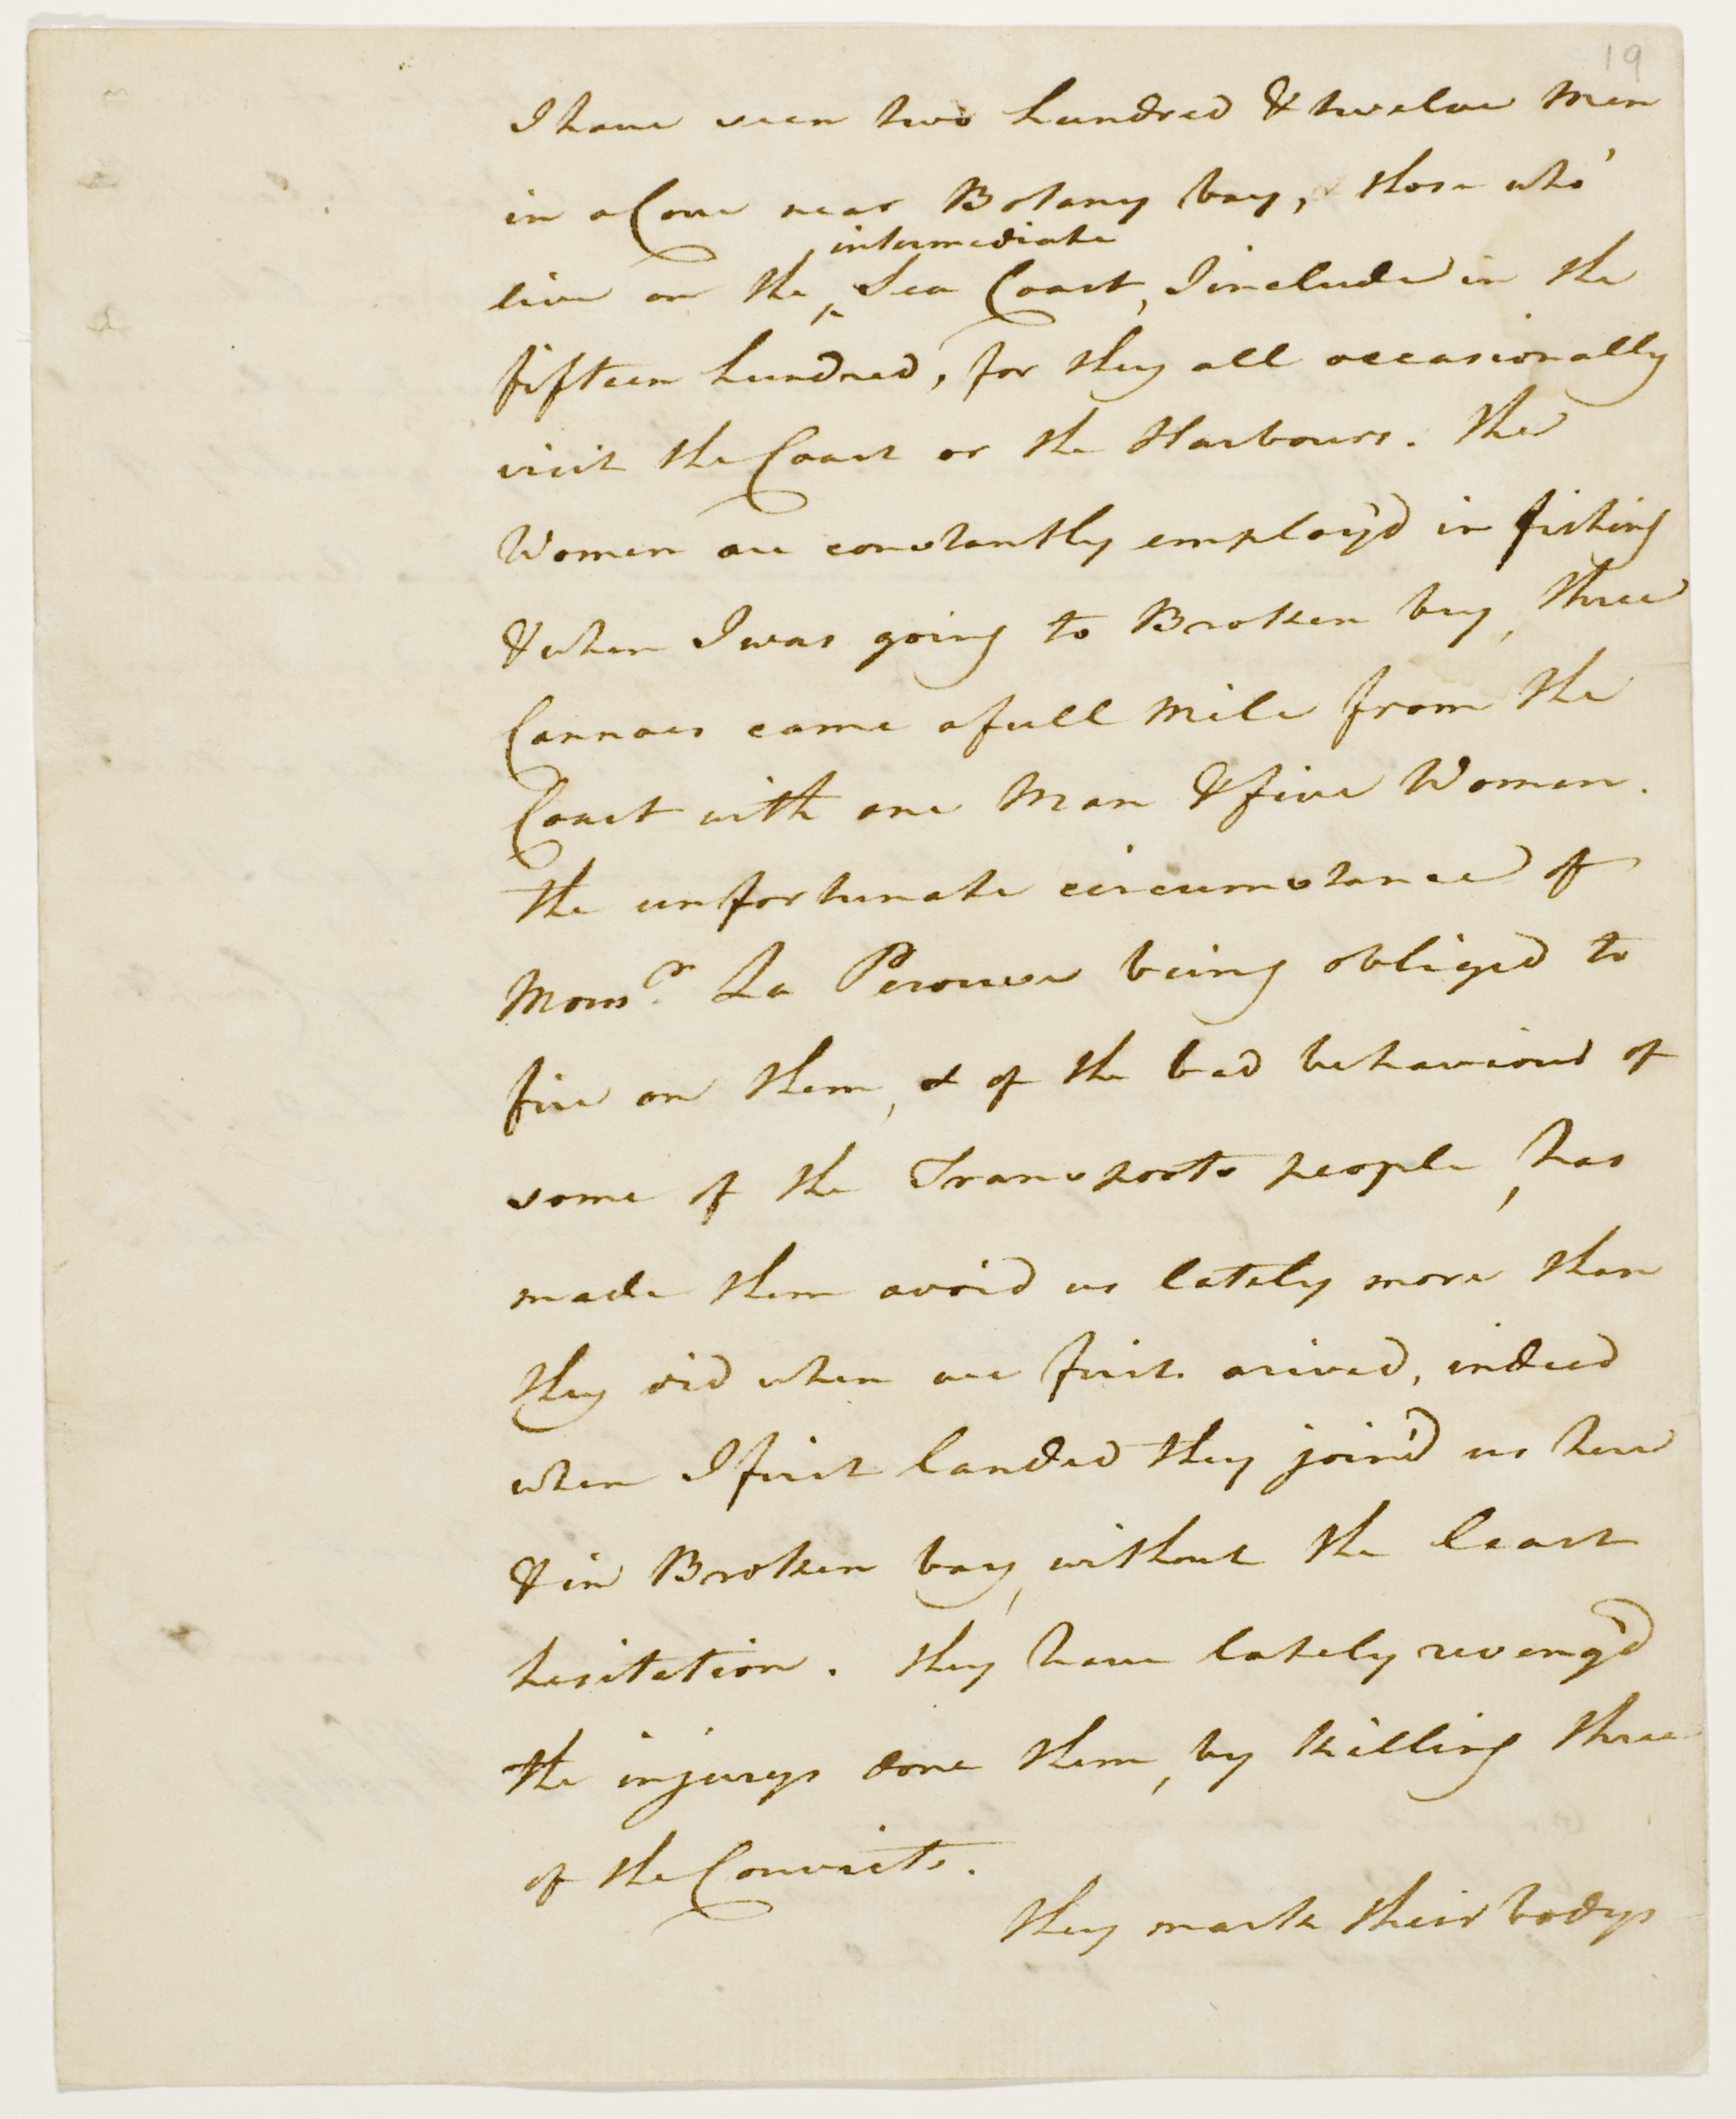 19
I have seen two hundred & twelve Men
in a Cove near Botany bay, & those who'
intermediate
live on the ^ Sea Coast, I include in the
fifteen hundred, for they all occasionally
visit the Coast or the Harbours. The
Women are constantly employ'd in fishing
& when I was going to Broken bay, three
Cannoes came a full Mile from the
Coast with one Man & five Women.
The unfortunate circumstance of
Monsr. La Perouse being obliged to
fire on them, & of the bad behaviour of
some of the Transports people, has
made them avoid us lately more than
they did when we first arived, indeed
when I first landed they join'd us here
& in Broken bay, without the least
hesitation. they have lately reveng'd
the injurys done them, by killing three
of the Convicts.
they mark their bodys